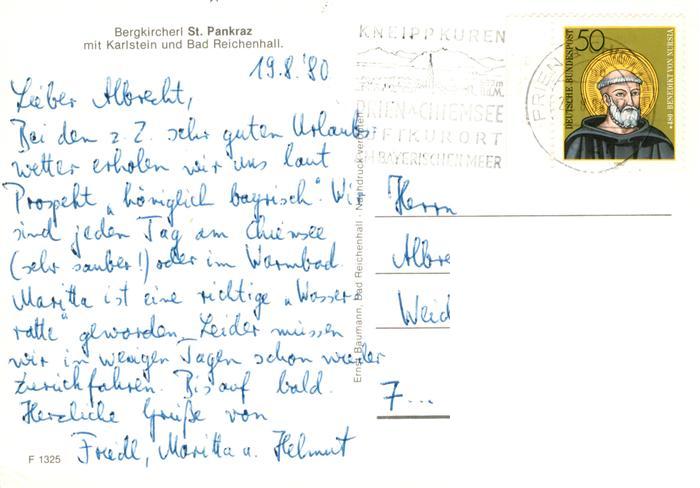 Bergkircherl St. Pankraz
mit Karlstein und Bad Reichenhall.
19.8.'80
Lieber Albrecht,
Bei den z. Z. sehr guten Urlaubs-
wetter erholen wir uns laut
Prospekt „königlich bayrisch". Wir
sind jeden Tag am Chiemsee
(sehr sauber!) oder im Warmbad.
Maritta ist eine richtige „Wasser-
ratte" geworden. Leider müssen
wir in wenigen Tagen schon wieder
zurückfahren. Bis auf bald.
Herzliche Grüße von
Friedl, Maritta u. Helmut
F 1325
Ernst Baumann, Bad Reichenhall · Nachdruck verboten
KNEIPPKUREN
PRIEN A CHIEMSEE
LUFTKURORT
AM BAYERISCHEN MEER
PRIEN
50
DEUTSCHE BUNDESPOST
*480 BENEDIKT VON NURSIA
Herrn
Albre
Weid
7...